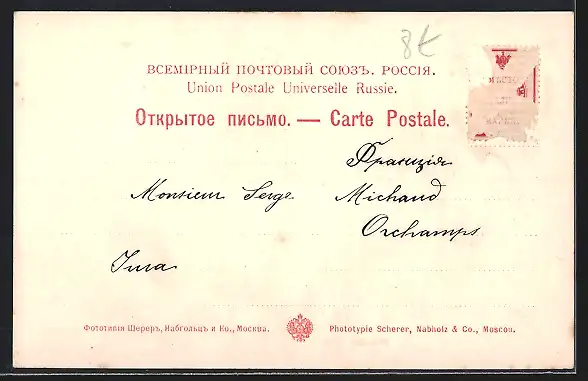 8t
ВСЕМІРНЫЙ ПОЧТОВЫЙ СОЮЗЪ. РОССІЯ.
Union Postale Universelle Russie.
Открытое письмо. — Carte Postale.
Франция
Monsieur Serge Michaud
Orchamps
Фототипія Шереръ, Набгольцъ и Ко., Москва.
Phototypie Scherer, Nabholz & Co., Moscou.